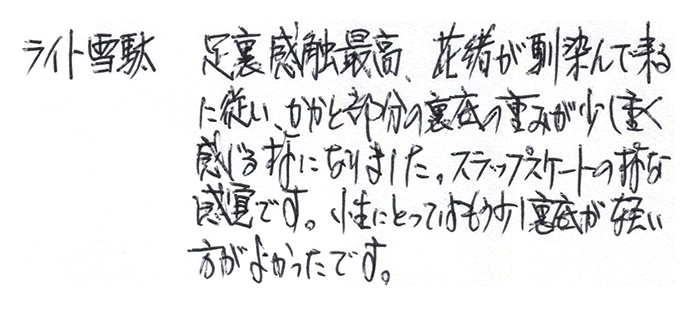 ライト雪駄　足裏感触最高、花緒が馴染んで来る
に従い、かかと部分の裏底の重みが少し重く
感じる様になりました。スラップスケートの様な
感覚です。小生にとってはもう少し裏底が軽い
方がよかったです。